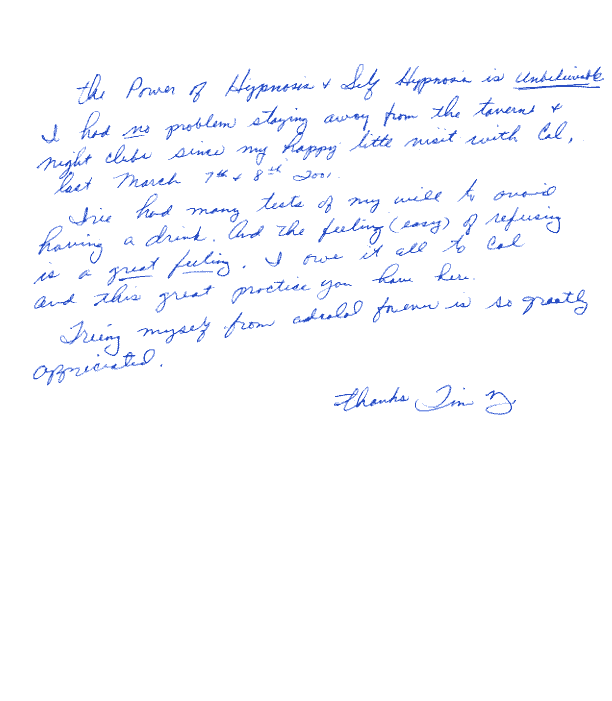 the Power of Hypnosis & Self Hypnosis is Unbelievable
I had no problem staying away from the taverns &
night clubs since my happy little visit with Cal,
last March 7th & 8th 2001.
I've had many tests of my will to avoid
having a drink. And the feeling (easy) of refusing
is a great feeling. I owe it all to Cal
and this great practise you have here.
Freeing myself from alcohol forever is so greatly
appreciated.
thanks Tim